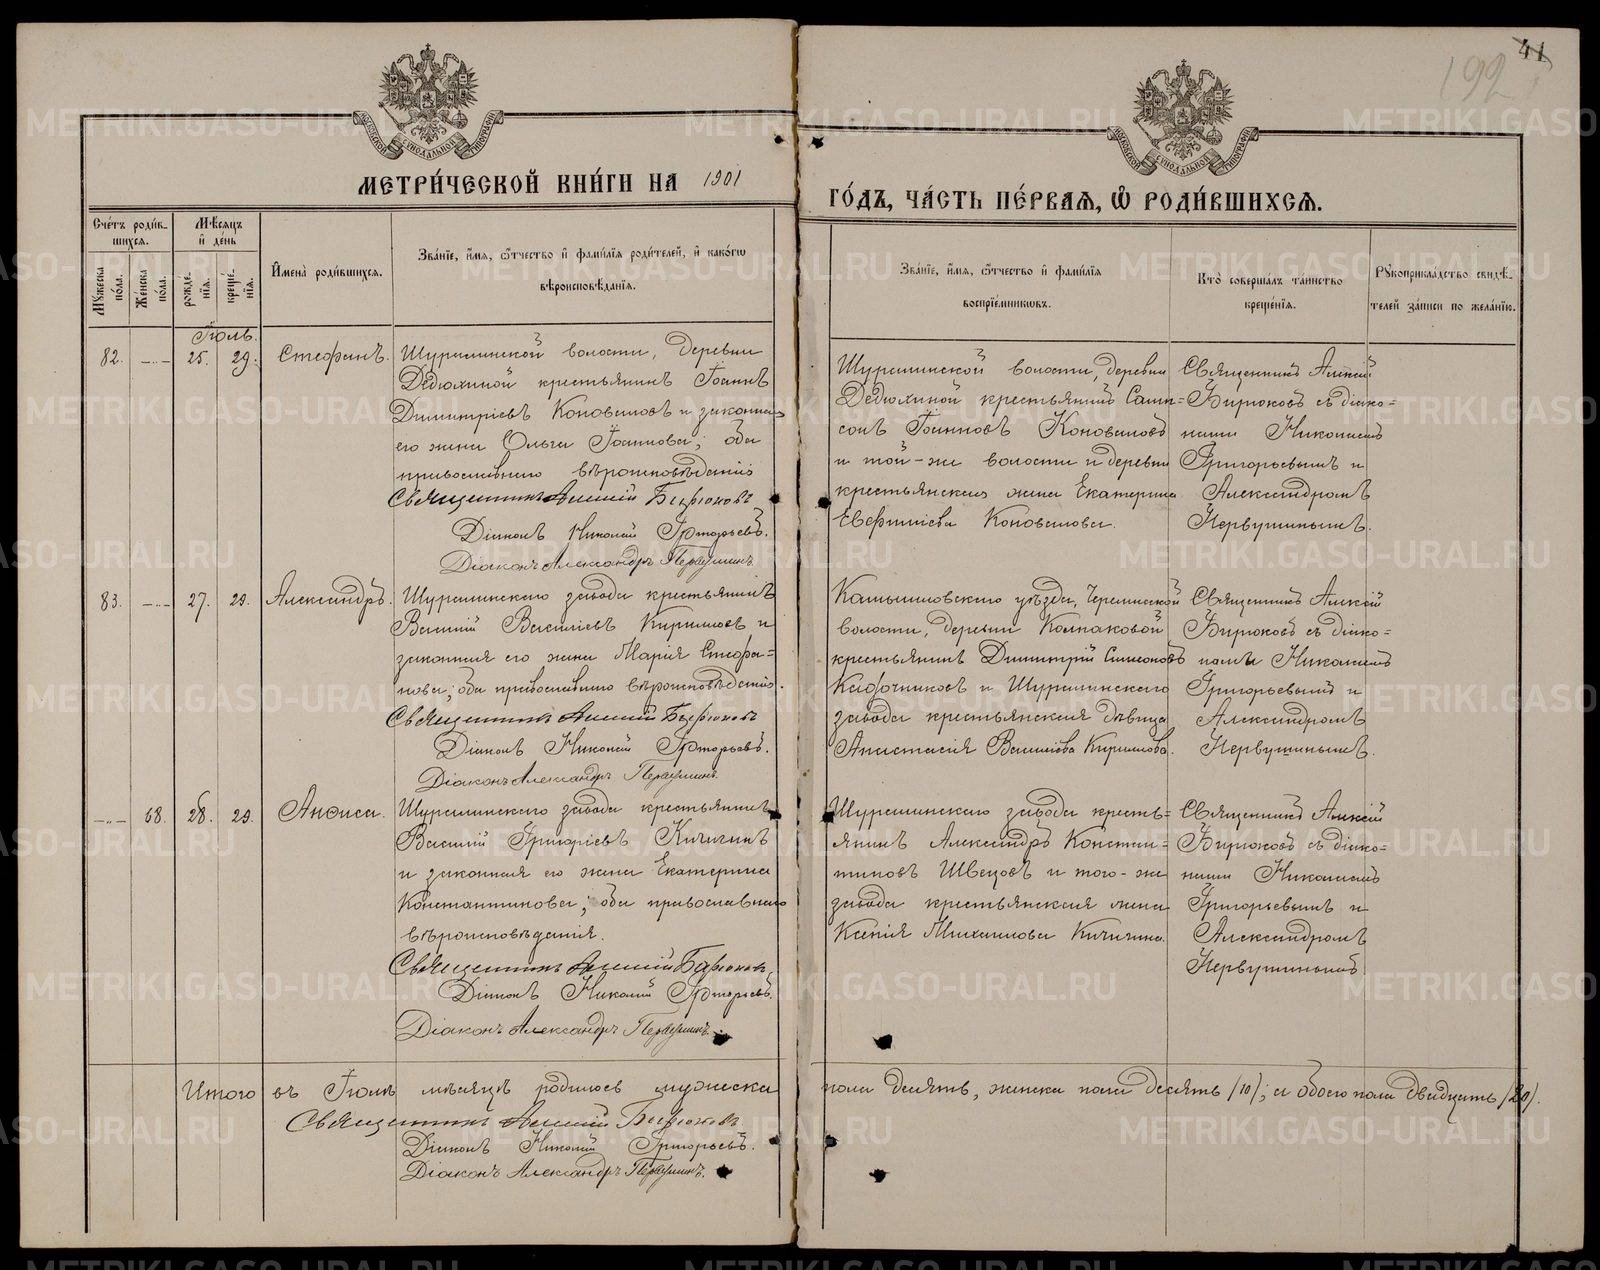 41
192
МЕТРИ́ЧЕСКОЙ КНИ́ГИ НА 1901
ГО́ДЪ, ЧА́СТЬ ПЕ́РВАѦ, Ѡ҆ РОДИ́ВШИХСѦ.
Сче́тъ роди́в-
шихся.
Мѣ́сяцъ
и҆ де́нь
Мꙋ́жеска по́ла.
Же́нска по́ла.
рожде́-
нїя.
креще́-
нїя.
И҆мена̀ роди́вшихся.
Зва́нїе, и҆́мя, ѻ҆́тчество и҆ фами́лїя роди́телей, и҆ како́гѡ
вѣроисповѣ́данїя.
Зва́нїе, и҆́мя, ѻ҆́тчество и҆ фами́лїя
воспрїе́мникѡвъ.
Кто̀ соверша́лъ та́инство
креще́нїя.
Рꙋкоприкла́дство свидѣ́-
телей за́писи по жела́нїю.
Іюль.
82.
25.
29.
Стефанъ.
Шуралинской волости, деревни
Дедюхиной крестьянинъ Іоаннъ
Димитріевъ Коноваловъ и законная
его жена Ольга Іоаннова; оба
православнаго вѣроисповѣданія
Священникъ Алексій Бирюковъ
Діаконъ Николай Григорьевъ.
Діаконъ Александръ Первушинъ.
Шуралинской волости, деревни
Дедюхиной крестьянинъ Сам-
сонъ Іоанновъ Коноваловъ
и той-же волости и деревни
крестьянская жена Екатерина
Евфиміева Коновалова.
Священникъ Алексій
Бирюковъ съ діако-
нами Николаемъ
Григорьевымъ и
Александромъ
Первушинымъ.
83.
27.
29.
Александръ.
Шуралинскаго завода крестьянинъ
Василій Васильевъ Кирилловъ и
законная его жена Марія Стефа-
нова; оба православнаго вѣроисповѣданія.
Священникъ Алексій Бирюковъ
Діаконъ Николай Григорьевъ.
Діаконъ Александръ Первушинъ.
Камышловскаго уѣзда,
волости, деревни Колпаковой
крестьянинъ Димитрій Симеоновъ
и Шуралинскаго
завода крестьянская дѣвица
Анастасія Васильева Кириллова.
Священникъ Алексій
Бирюковъ съ діако-
нами Николаемъ
Григорьевымъ и
Александромъ
Первушинымъ.
68.
28.
29.
Анфиса.
Шуралинскаго завода крестьянинъ
Василій Григоріевъ Кичигинъ
и законная его жена Екатерина
Константинова; оба православнаго
вѣроисповѣданія.
Священникъ Алексій Бирюковъ
Діаконъ Николай Григорьевъ.
Діаконъ Александръ Первушинъ.
Шуралинскаго завода кресть-
янинъ Александръ Констан-
тиновъ Швецовъ и того-же
завода крестьянская жена
Ксенія Михаилова Кичигина.
Священникъ Алексій
Бирюковъ съ діако-
нами Николаемъ
Григорьевымъ и
Александромъ
Первушинымъ
Итого въ Іюлѣ мѣсяцѣ родилось мужеска
пола десять, женска пола десять /10/; а обоего пола двадцать /20/.
Священникъ Алексій Бирюковъ
Діаконъ Николай Григорьевъ.
Діаконъ Александръ Первушинъ.
METRIKI.GASO-URAL.RU